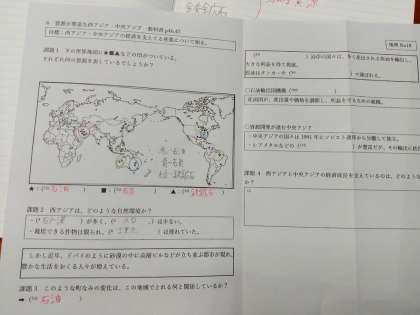 6 資源が豊富な西アジア・中央アジア 教科書 p44,45
目標:西アジア・中央アジアの経済を支えてる産業について知る。
課題1 下の世界地図に★■▲などの印がついている。
それぞれ何の資源を表しているでしょうか?
★:( 石油 ) ■:( 石炭 ) ▲:( 鉄鉱石 )
課題2 西アジアは、どのような自然環境か?
が多く、
は少ない。
・栽培できる作物は限られ、
は遅れていた。
しかし近年、ドバイのように砂漠の中に高層ビルなどが立ち並ぶ都市が現れ、
豊かな生活をおくる人々が増えている。
課題3 このような町なみの変化は、この地域でとれる何と関係しているか?
➡( 石油 )
地理 No18
沿岸の国々は、多く産出される原油を輸出し、
大きな利益を得て発展。
原油はタンカーや
で運ばれる。
○石油輸出国機構
産油国が、産出量や価格を調節し、利益を守るための組織。
○資源開発が進む中央アジア
・中央アジアの国々は 1991 年にソビエト連邦から分離して独立。
・レアメタルなどの
が豊富だが、その輸出に
課題4 西アジアと中央アジアの経済成長を支えているのは、どのような
か?